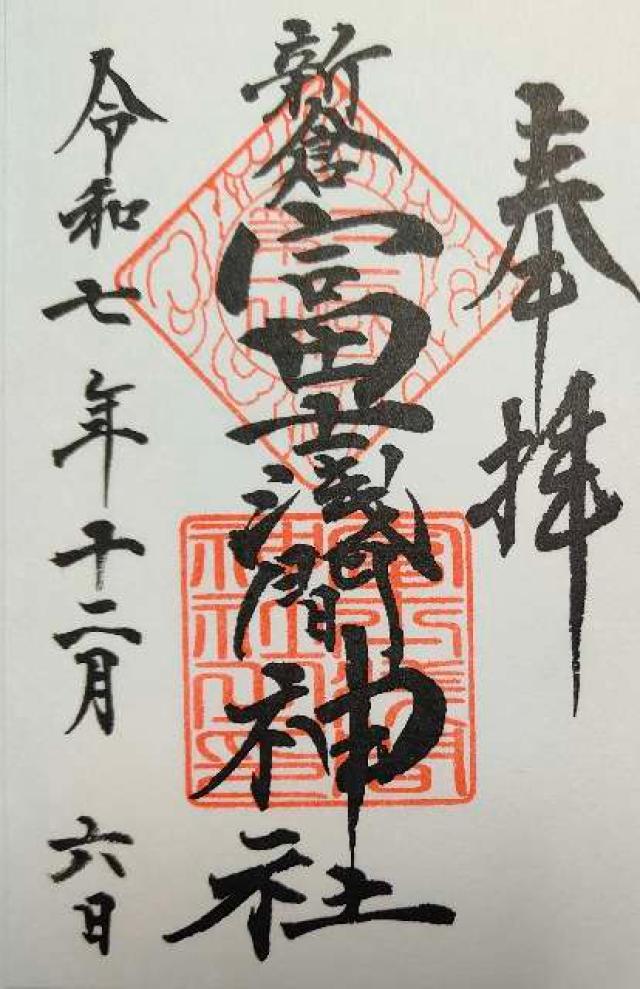 奉拝
新倉富士浅間神社
令和七年十二月六日